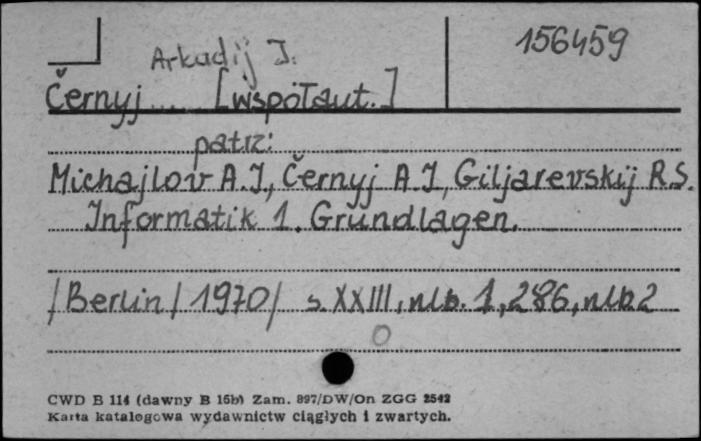 156459
Arkadij J.
Černyj .... [współaut.]
patrz:
Michajlov A.J., Černyj A.J., Giljarevskij R.S.
Informatik 1. Grundlagen.
/Berlin/ 1970/ s. XXIII, nlb. 1, 286, nlb. 2
0
CWD B 114 (dawny B 16b) Zam. 897/DW/On ZGG 2542
Karta katalogowa wydawnictw ciągłych i zwartych.